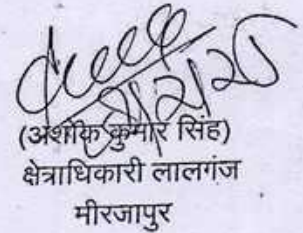 (अशोक कुमार सिंह)
क्षेत्राधिकारी लालगंज
मीरजापुर